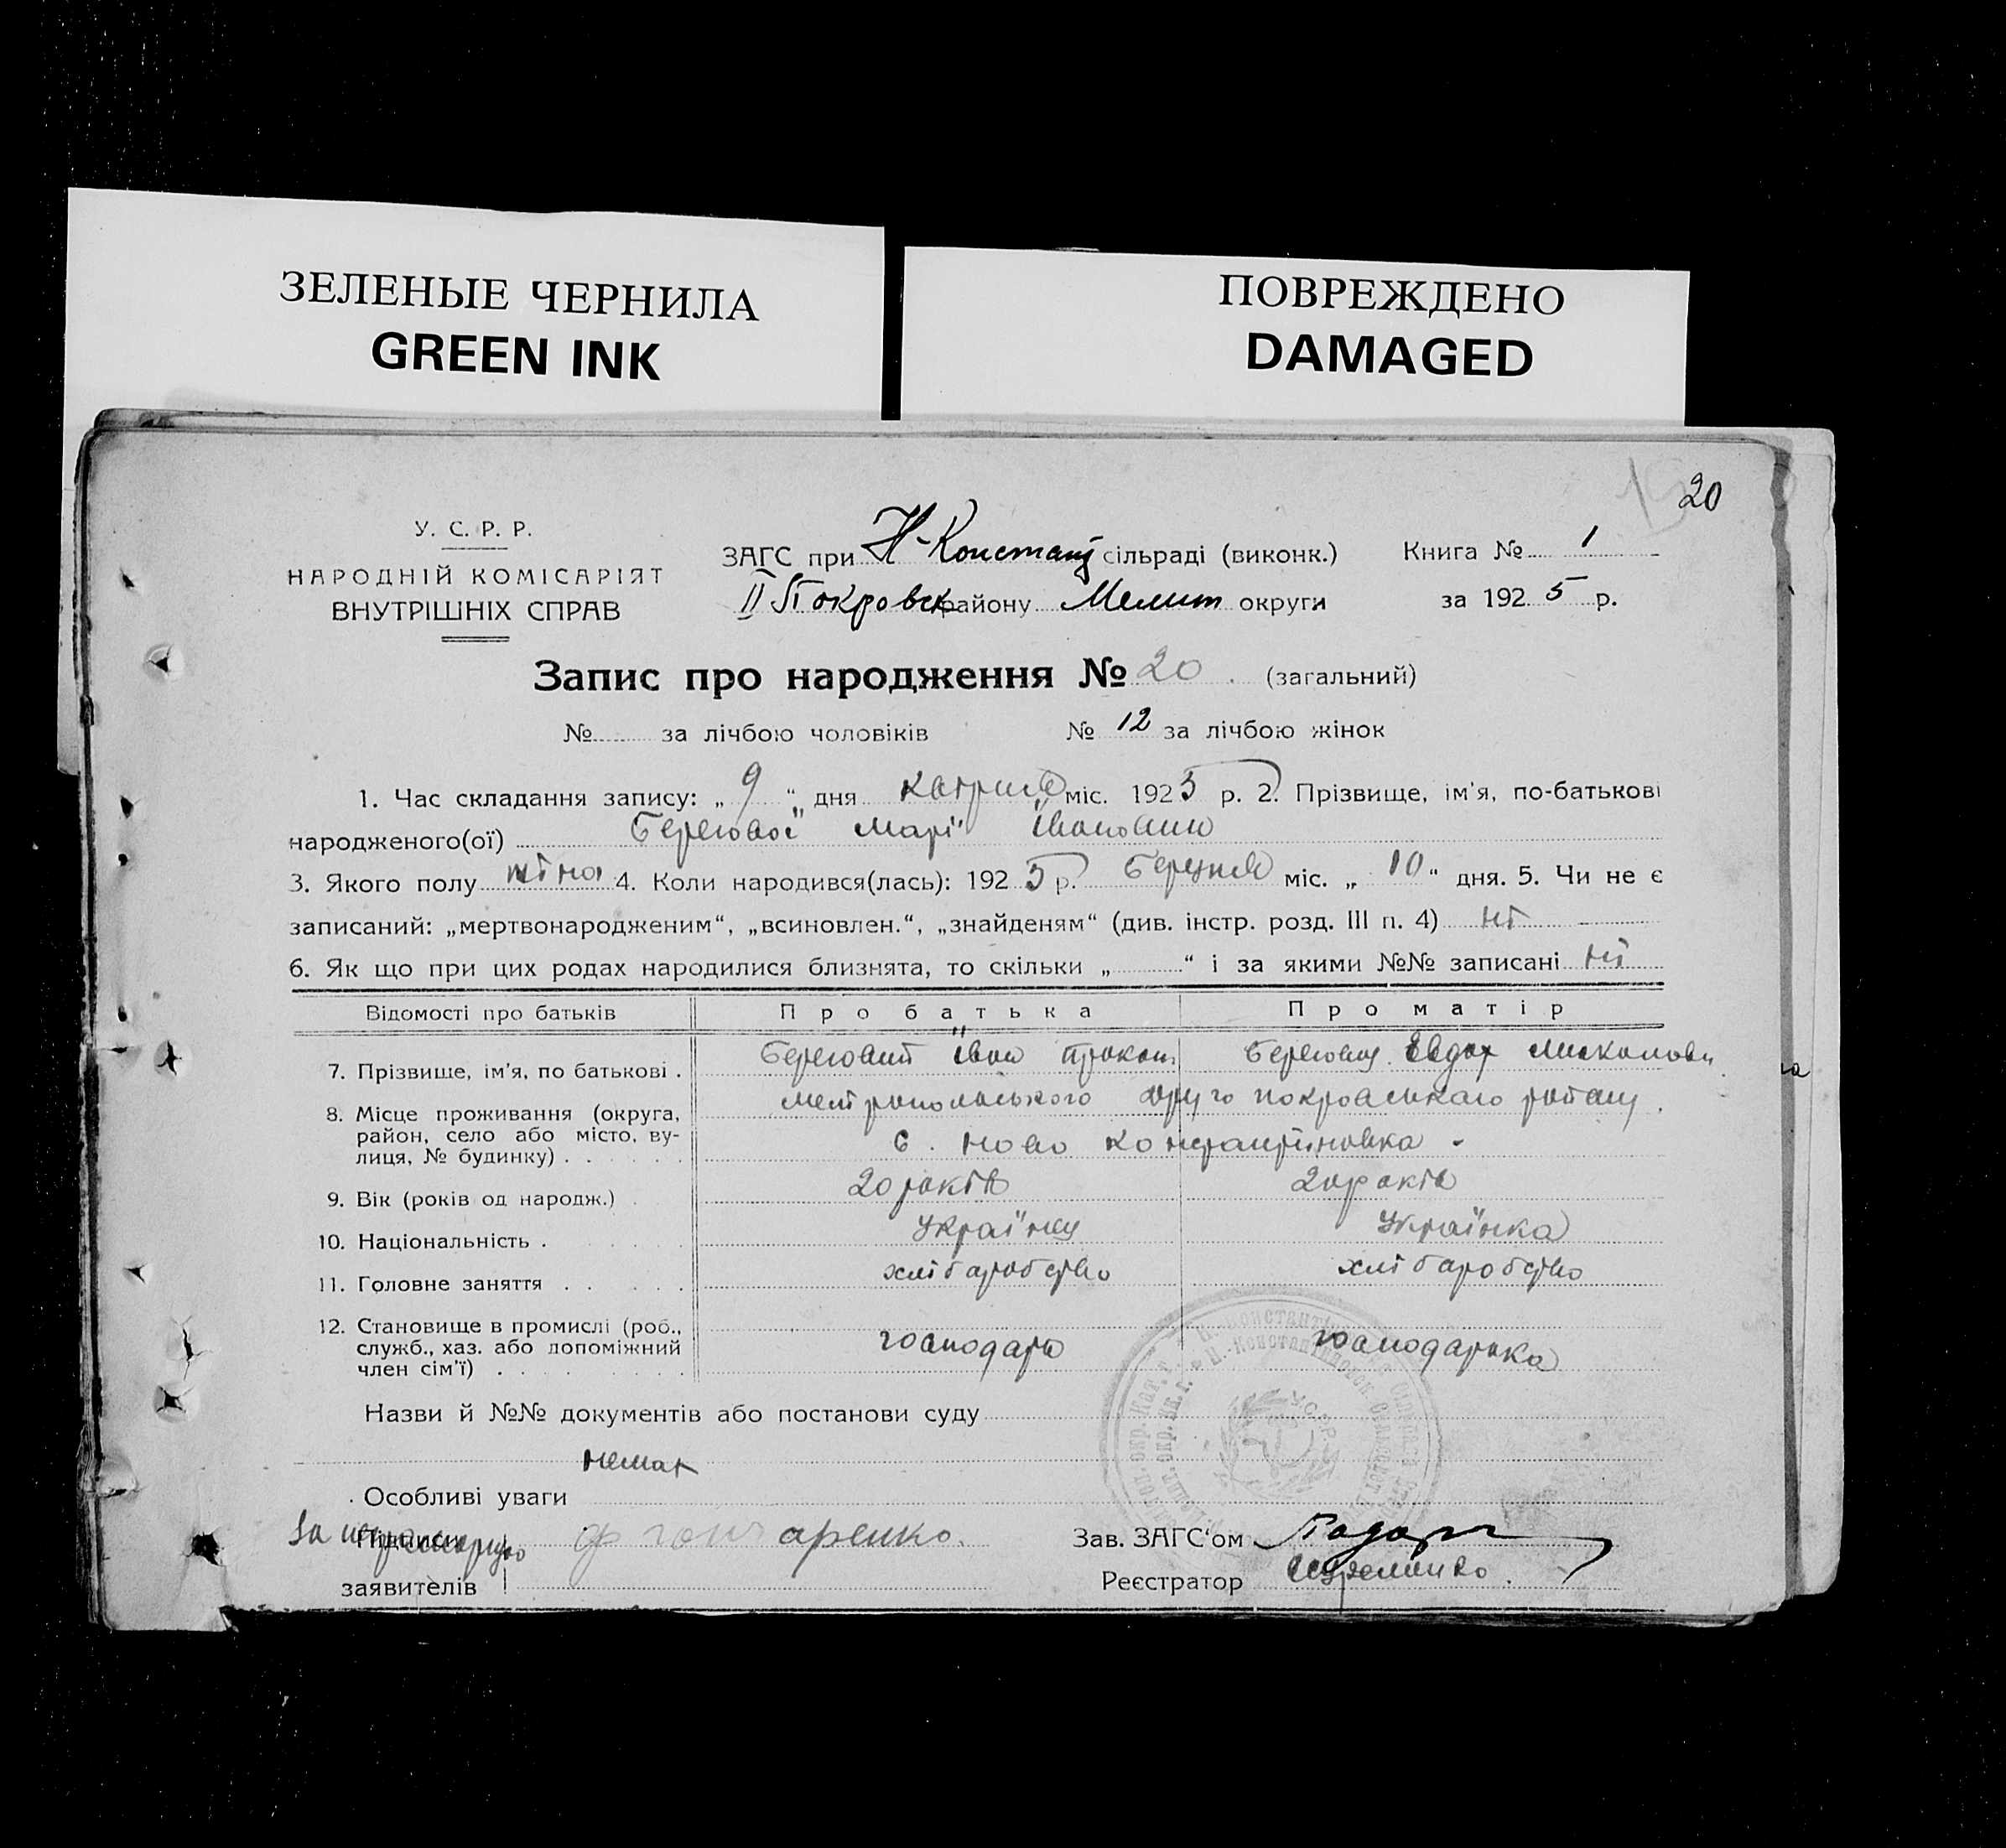 ЗЕЛЕНЫЕ ЧЕРНИЛА
GREEN INK
ПОВРЕЖДЕНО
DAMAGED
20
У. С. Р. Р.
НАРОДНІЙ КОМІСАРІЯТ
ВНУТРІШНІХ СПРАВ
ЗАГС при Н-Констант сільраді (виконк.) Книга № 1
II Покровск району Мелит округи за 1925 р.
Запис про народження № 20 (загальний)
№ за лічбою чоловіків № 12 за лічбою жінок
1. Час складання запису: „ 9 “ дня квітня міс. 1925 р. 2. Прізвище, ім'я, по-батькові
народженого(ої) Берегової Марі Івановни
3. Якого полу жіноч 4. Коли народився(лась): 1925 р. Березня міс. „ 10 “ дня. 5. Чи не є
записаний: „мертвонародженим“, „всиновлен.“, „знайденям“ (див. інстр. розд. III п. 4) ні
6. Як що при цих родах народилися близнята, то скільки „ “ і за якими №№ записані ні
Відомості про батьків Про батька Про матір
7. Прізвище, ім'я, по батькові . Береговий Іван Прокоп Берегову Евдох
8. Місце проживання (округа, район, село або місто, вулиця, № будинку) . друго покровського
с. Ново Константиновка
9. Вік (років од народж.) 20 років 20 років
10. Національність . Українец Українка
11. Головне заняття . хліборобство хліборобство
12. Становище в промислі (роб., служб., хаз. або допоміжний член сім'ї) . господарь господарька
Назви й №№ документів або постанови суду
немає
Особливі уваги
Підписи Гончаренко. Зав. ЗАГС'ом
заявителів Реєстратор